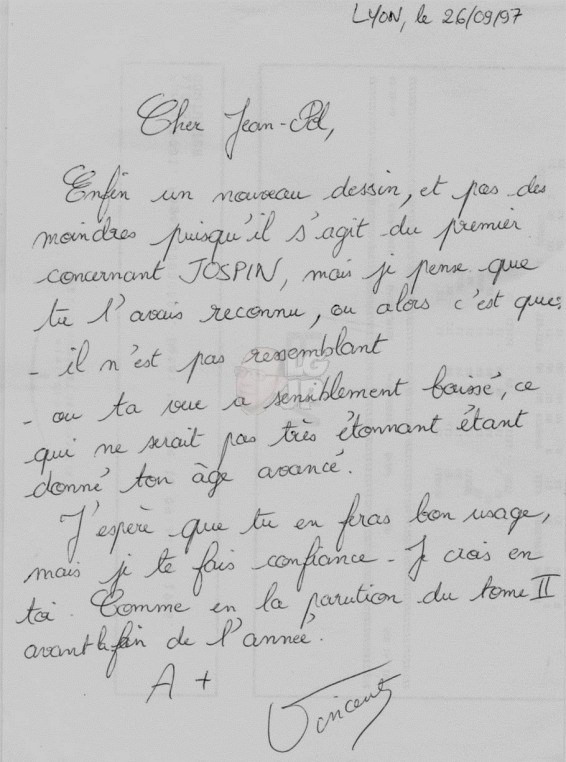 LYON, le 26/09/97
Cher Jean-Pol,
Enfin un nouveau dessin, et pas des
moindres puisqu'il s'agit du premier
concernant JOSPIN, mais je pense que
tu l'avais reconnu, ou alors c'est que:
- il n'est pas ressemblant
- ou ta vue a sensiblement baissé, ce
qui ne serait pas très étonnant étant
donné ton âge avancé.
J'espère que tu en feras bon usage,
mais je te fais confiance - Je crois en
toi. Comme en la parution du tome II
avant la fin de l'année.
A +
Vincent